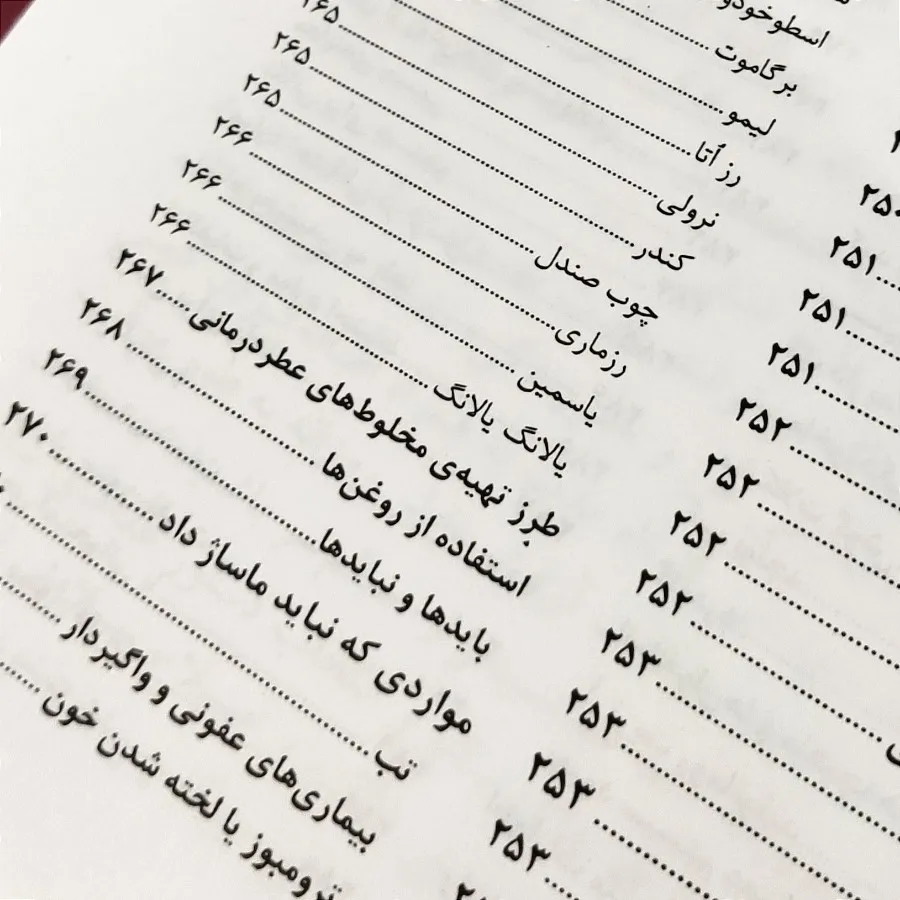 برگاموت
لیمو
رز اُتا
نرولی ۲۶۵
کندر ۲۶۵
چوب صندل ۲۶۵
رزماری ۲۶۶
یاسمین ۲۶۶
یالانگ یالانگ ۲۶۶
طرز تهیه‌ی مخلوط‌های عطردرمانی ۲۶۷
استفاده از روغن‌ها ۲۶۸
بایدها و نبایدها ۲۶۹
مواردی که نباید ماساژ داد ۲۷۰
تب
بیماری‌های عفونی و واگیردار
ترومبوز یا لخته شدن خون
۲۵۰
۲۵۱
۲۵۱
۲۵۱
۲۵۲
۲۵۲
۲۵۲
۲۵۲
۲۵۳
۲۵۳
۲۵۳
۲۵۳